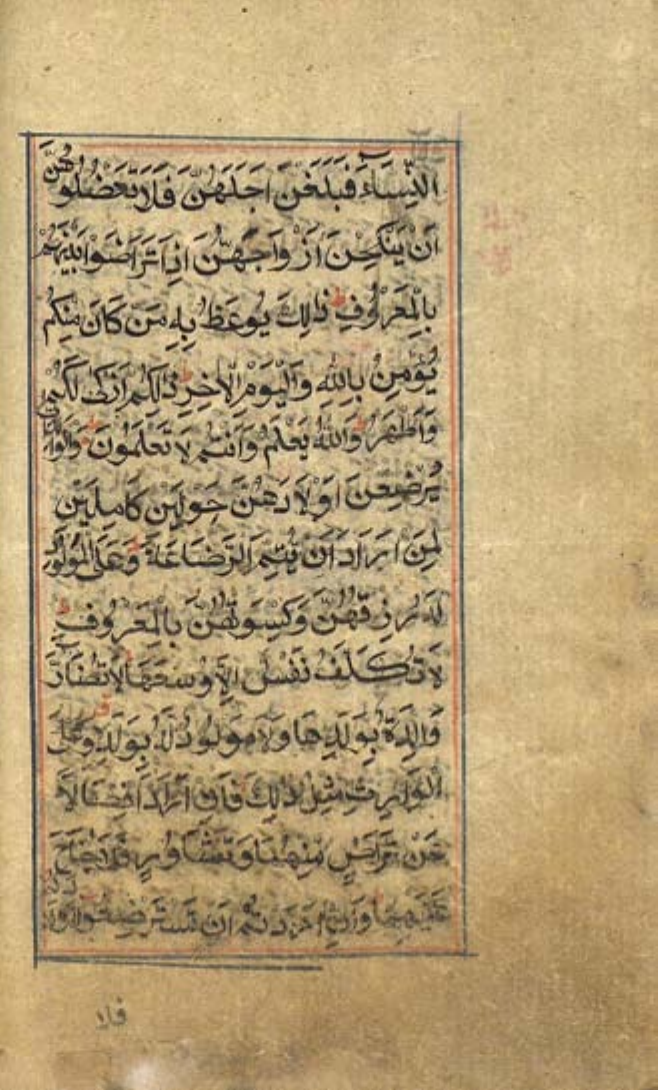 النِّسَاءَ فَبَلَغْنَ اَجَلَهُنَّ فَلَا تَعْضُلُوهُنَّ
اَنْ يَنْكِحْنَ اَزْوَاجَهُنَّ اِذَا تَرَاضَوْا بَيْنَهُمْ
بِالْمَعْرُوفِ ط ذٰلِكَ يُوعَظُ بِهِ مَنْ كَانَ مِنْكُمْ
يُؤْمِنُ بِاللّٰهِ وَالْيَوْمِ الْاٰخِرِ ط ذٰلِكُمْ اَزْكٰى لَكُمْ
وَاَطْهَرُ ط وَاللّٰهُ يَعْلَمُ وَاَنْتُمْ لَا تَعْلَمُونَ وَالْوَالِدَاتُ
يُرْضِعْنَ اَوْلَادَهُنَّ حَوْلَيْنِ كَامِلَيْنِ
لِمَنْ اَرَادَ اَنْ يُتِمَّ الرَّضَاعَةَ ط وَعَلَى الْمَوْلُودِ
لَهُ رِزْقُهُنَّ وَكِسْوَتُهُنَّ بِالْمَعْرُوفِ ط
لَا تُكَلَّفُ نَفْسٌ اِلَّا وُسْعَهَا لَا تُضَارَّ
وَالِدَةٌ بِوَلَدِهَا وَلَا مَوْلُودٌ لَهُ بِوَلَدِهِ وَعَلَى
الْوَارِثِ مِثْلُ ذٰلِكَ فَاِنْ اَرَادَا فِصَالًا
عَنْ تَرَاضٍ مِنْهُمَا وَتَشَاوُرٍ فَلَا جُنَاحَ
عَلَيْهِمَا وَاِنْ اَرَدْتُمْ اَنْ تَسْتَرْضِعُوا اَوْلَادَكُمْ
فلا